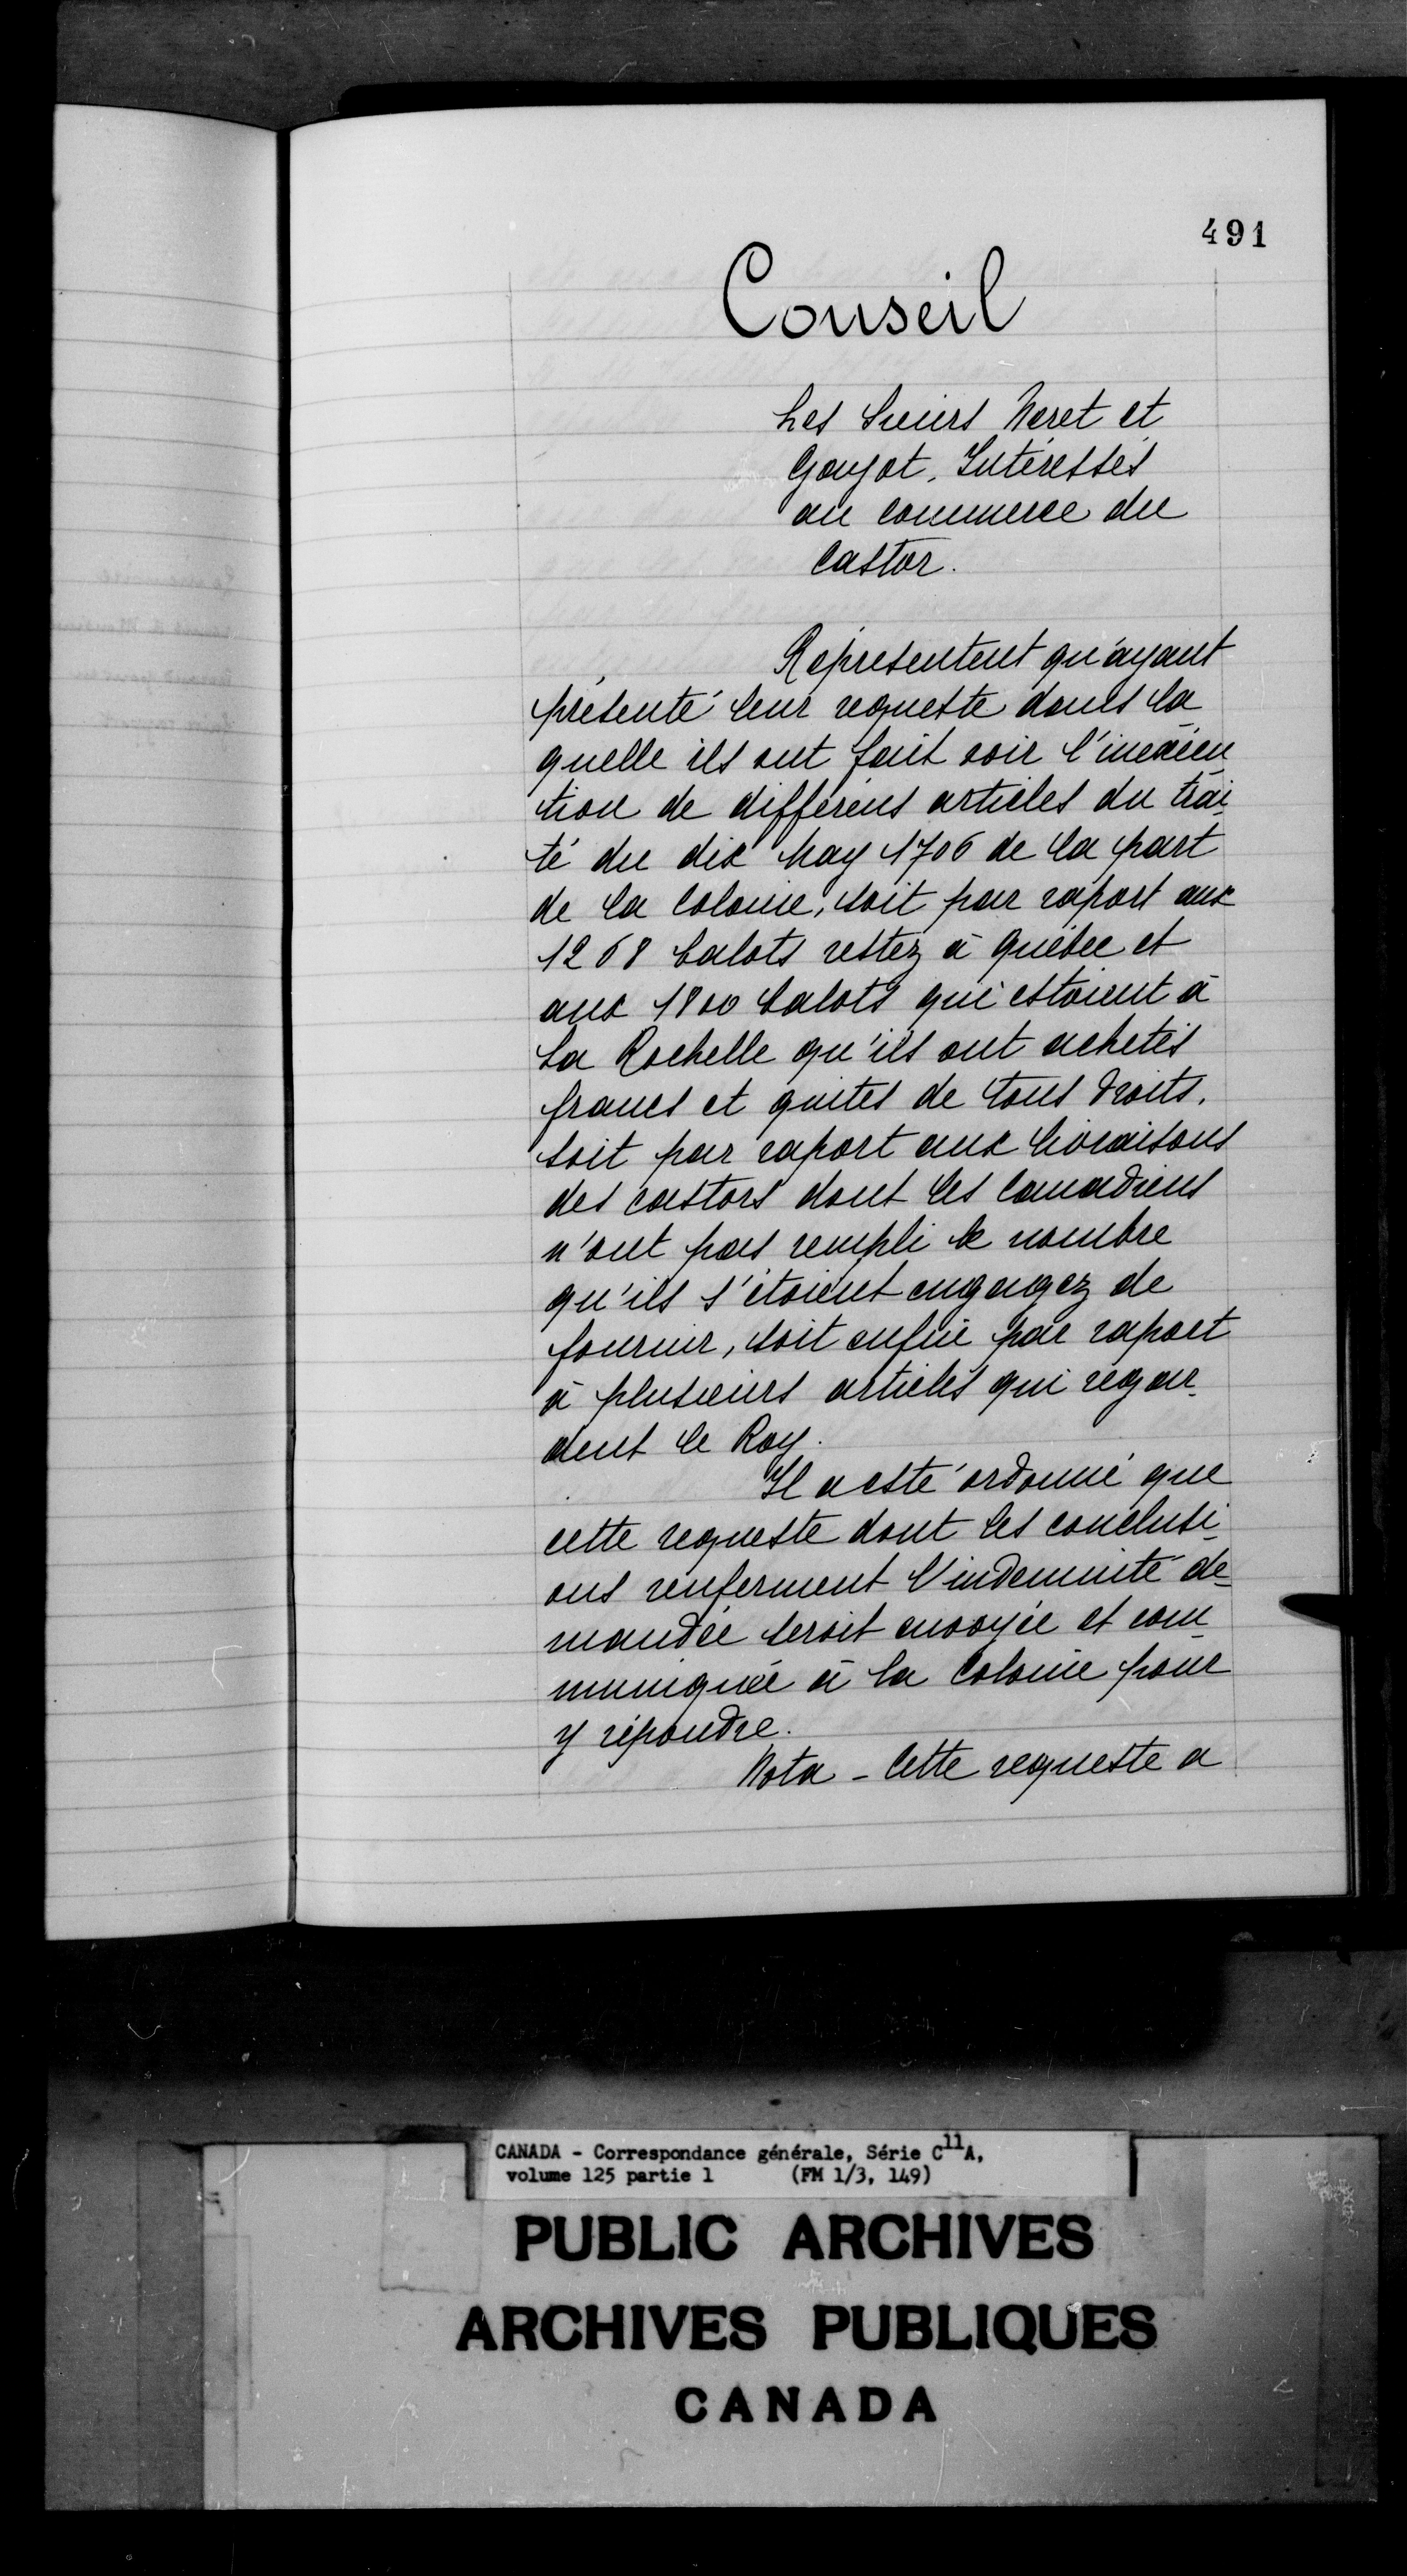 491
Conseil
Les Sieurs Neret et
Gayot. Intéressés
au commerce du
Castor.
Représentent qu'ayant
présenté leur requeste dans la
quelle ils ont fait voir l'inexécu
tion de différens articles du trai
té du dix May 1706 de la part
de la Colonie, soit par raport aux
1268 balots restez à Québec et
aux 1800 balots qui estoient à
La Rochelle qu'ils ont achetés
francs et quites de tous droits,
soit par raport aux livraisons
des castors dont les Canadiens
n'ont pas rempli le nombre
qu'ils s'étoient engagez de
fournir, soit enfin par raport
à plusieurs articles qui regar-
dent le Roy.
Il a esté ordonné que
cette requeste dont les conclusi-
ons renferment l'indemnité de-
mandée seroit envoyée et com
muniquée à la Colonie pour
y répondre.
Nota - Cette requeste a
CANADA - Correspondance générale, Série C11A,
volume 125 partie 1 (FM 1/3, 149)
PUBLIC ARCHIVES
ARCHIVES PUBLIQUES
CANADA